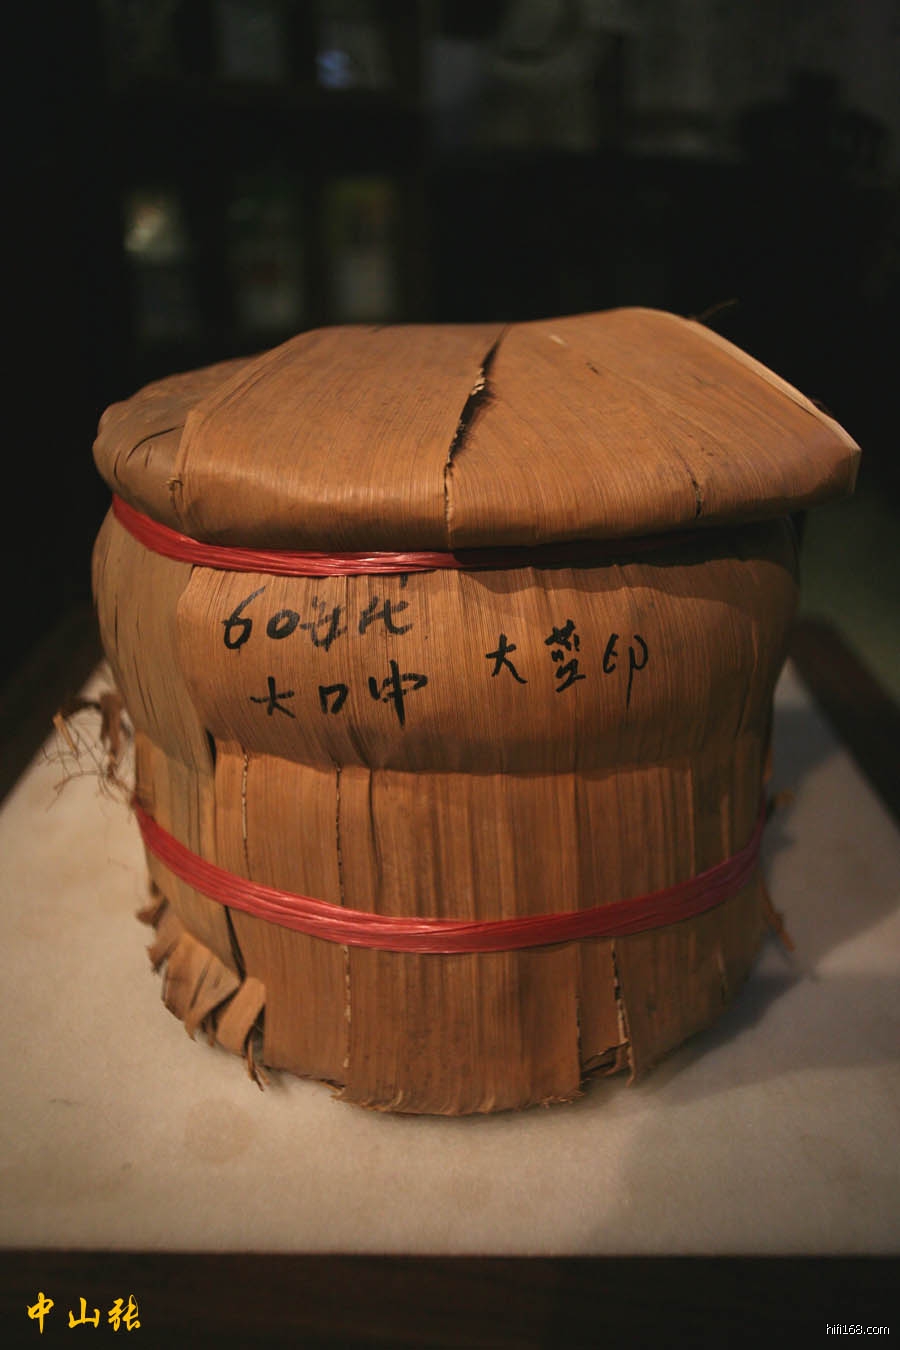 60年代
大口中 大蓝印
中山张
hifi168.com